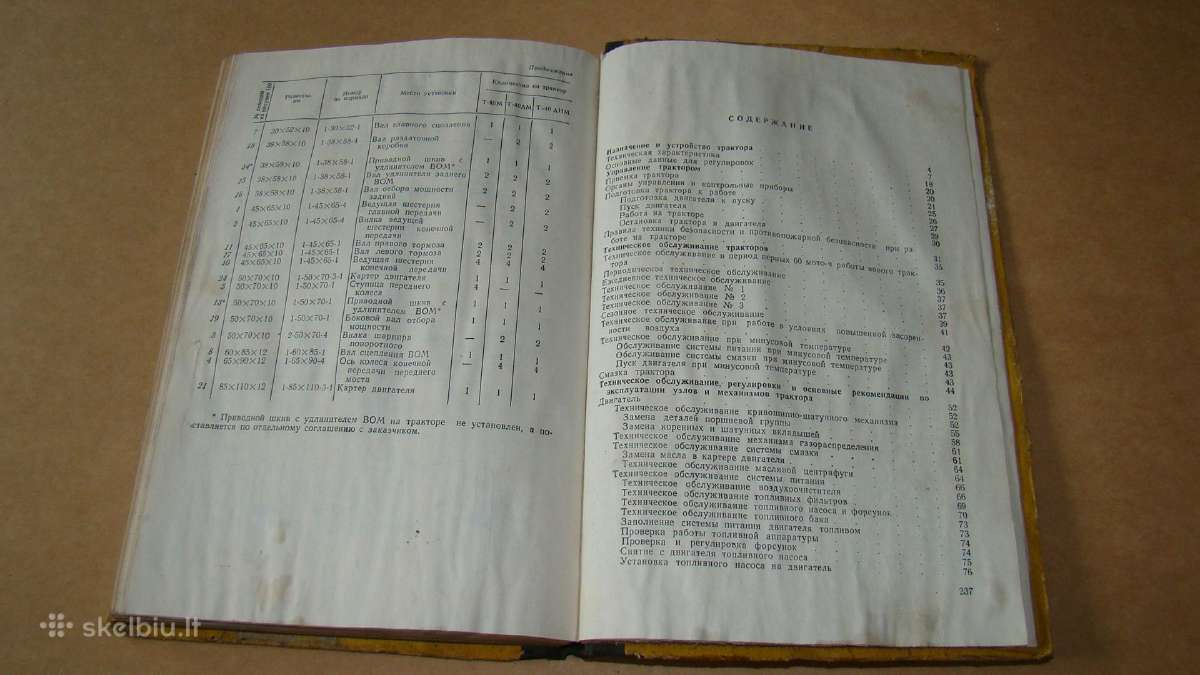 Продолжение
Размеры, мм
Номер по нормали
Место установки
Количество на трактор
Т-40М Т-40АМ Т-40 АНМ
7 30×52×10 1-30×52-1 Вал главного сцепления 1 1 1
38×58×10 1-38×58-4 Вал раздаточной — 2 2
коробки
24* 38×58×10 1-38×58-1 Приводной шкив с 1 1 1
удлинителем ВОМ*
25 38×58×10 1-38×58-1 Вал удлинителя заднего 2 2 2
ВОМ
38×58×10 1-38×58-1 Вал отбора мощности 2 2 2
задний
1 45×65×10 1-45×65-4 Ведущая шестерня — 2 2
главной передачи
2 45×65×10 1-45×65-4 Вилка ведущей — 2 2
шестерни конечной
передачи
11 45×65×10 1-45×65-1 Вал правого тормоза 2 2 2
17 45×65×10 1-45×65-1 Вал левого тормоза 2 2 2
10 45×65×10 1-45×65-4 Ведущая шестерня 4 4 4
конечной передачи
24 50×70×10 1-50×70-3-1 Картер двигателя 1 1 1
3 50×70×10 1-50×70-1 Ступица переднего 4 — —
колеса
13* 50×70×10 1-50×70-1 Приводной шкив с 1 1 1
удлинителем ВОМ*
19 50×70×10 1-50×70-1 Боковой вал отбора 1 1 1
мощности
3 50×70×10 2-50×70-4 Вилка шарнира — 2 2
поворотного
6 60×85×12 1-60×85-1 Вал сцепления ВОМ 1 1 1
4 65×90×12 1-65×90-4 Ось колеса конечной — 4 4
передачи переднего
моста
21 85×110×12 1-85×110-3-1 Картер двигателя 1 1 1
* Приводной шкив с удлинителем ВОМ на тракторе не установлен, а по-
ставляется по отдельному соглашению с заказчиком.
СОДЕРЖАНИЕ
Назначение и устройство трактора
Техническая характеристика 4
Основные данные для регулировок 7
Управление трактором 18
Приемка трактора 20
Органы управления и контрольные приборы 20
Подготовка трактора к работе 21
Подготовка двигателя к пуску 25
Пуск двигателя 26
Работа на тракторе 27
Остановка трактора и двигателя 29
Правила техники безопасности и противопожарной безопасности при ра- 30
боте на тракторе
Техническое обслуживание тракторов 31
Техническое обслуживание в период первых 60 мото-ч работы нового трак- 34
тора
Периодическое техническое обслуживание 35
Ежедневное техническое обслуживание 35
Техническое обслуживание № 1 36
Техническое обслуживание № 2 37
Техническое обслуживание № 3 37
Сезонное техническое обслуживание 37
Техническое обслуживание при работе в условиях повышенной засорен- 39
ности воздуха 41
Техническое обслуживание при минусовой температуре
Обслуживание системы питания при минусовой температуре 42
Обслуживание системы смазки при минусовой температуре 43
Пуск двигателя при минусовой температуре 43
Смазка трактора 43
Техническое обслуживание, регулировки и основные рекомендации по 44
эксплуатации узлов и механизмов трактора
Двигатель
Техническое обслуживание кривошипно-шатунного механизма 52
Замена деталей поршневой группы 52
Замена коренных и шатунных вкладышей 52
Техническое обслуживание механизма газораспределения 55
Техническое обслуживание системы смазки 58
Замена масла в картере двигателя 61
Техническое обслуживание масляной центрифуги 61
Техническое обслуживание системы питания 64
Техническое обслуживание воздухоочистителя 64
Техническое обслуживание топливных фильтров 66
Техническое обслуживание топливного насоса и форсунок 66
Техническое обслуживание топливного бака 69
Заполнение системы питания двигателя топливом 70
Проверка работы топливной аппаратуры 73
Проверка и регулировка форсунок 73
Снятие с двигателя топливного насоса 74
Установка топливного насоса на двигатель 74
75
76
237
skelbiu.lt